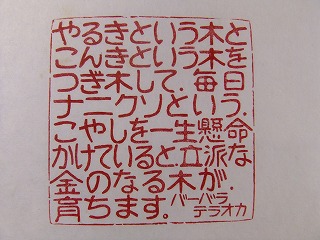 やるきという木と
こんきという木を
つぎ木して.毎日
ナニクソという.
こやしを一生懸命
かけていると.立派な
金のなる木が.
育ちます。バーバラ
テラオカ